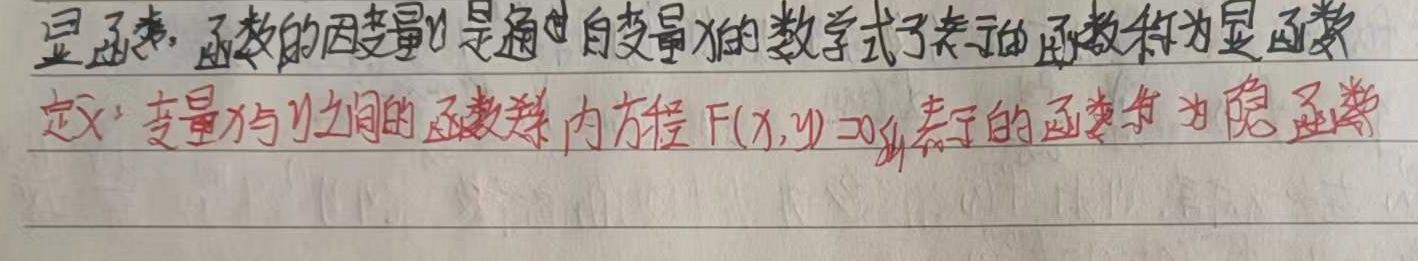 显函数,函数的因变量y是通过自变量x的数学式子表示的函数称为显函数
定义:变量x与y之间的函数关系内方程F(x,y)=0所表示的函数称为隐函数